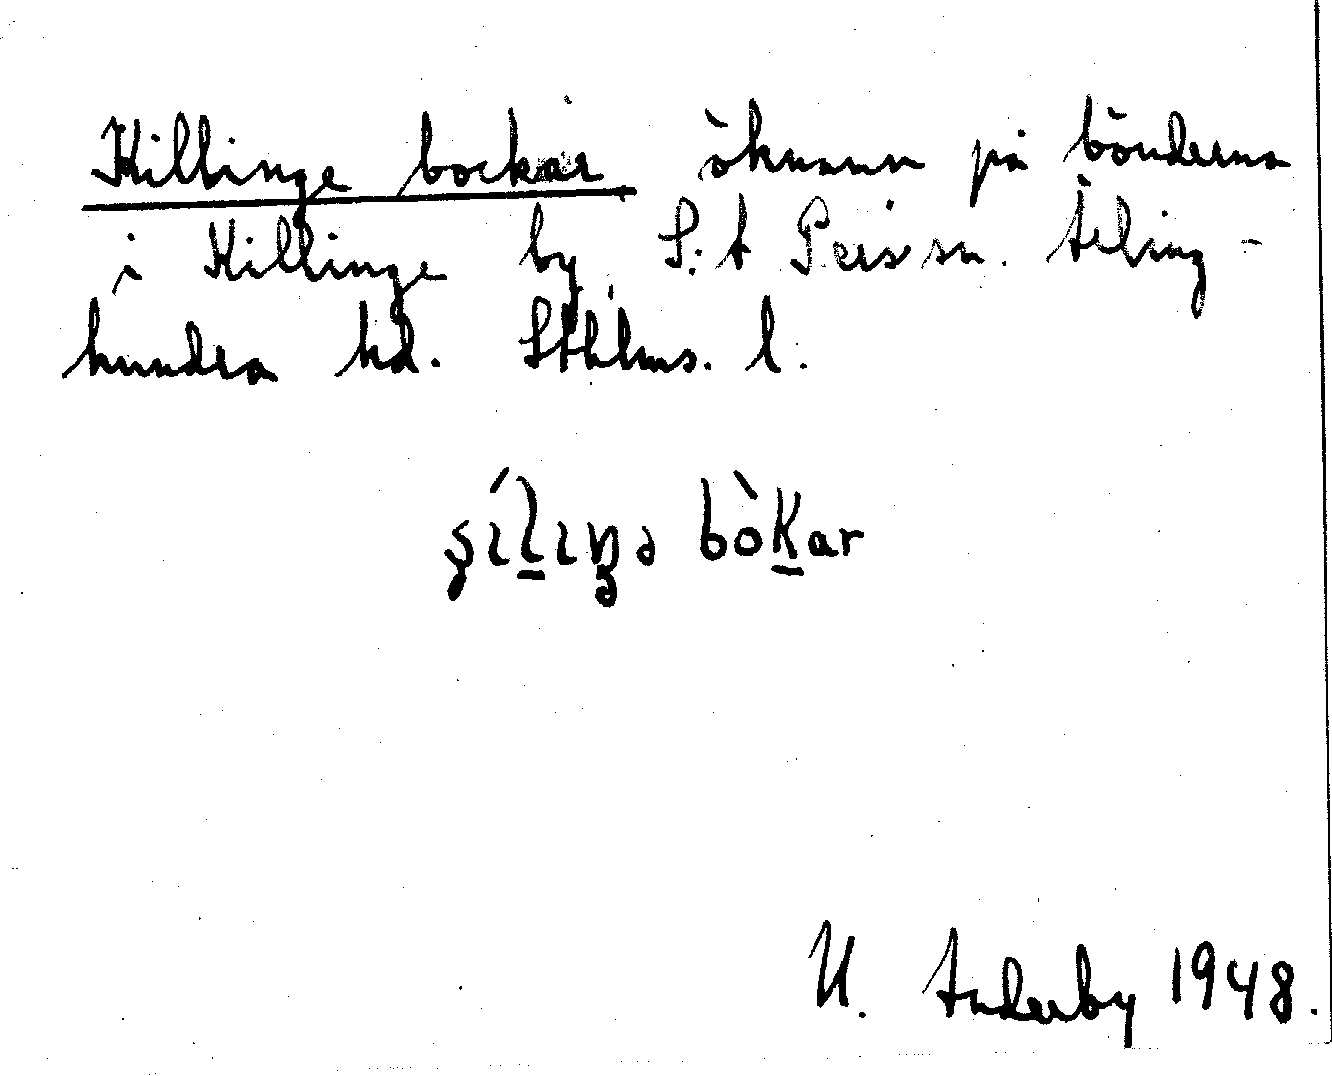 Killinge bockar öknamn på bönderna
i Killinge by S:t Pers sn. Ärling-
hundra hd. Sthlms. l.
bòkar
U. Anderby 1948.